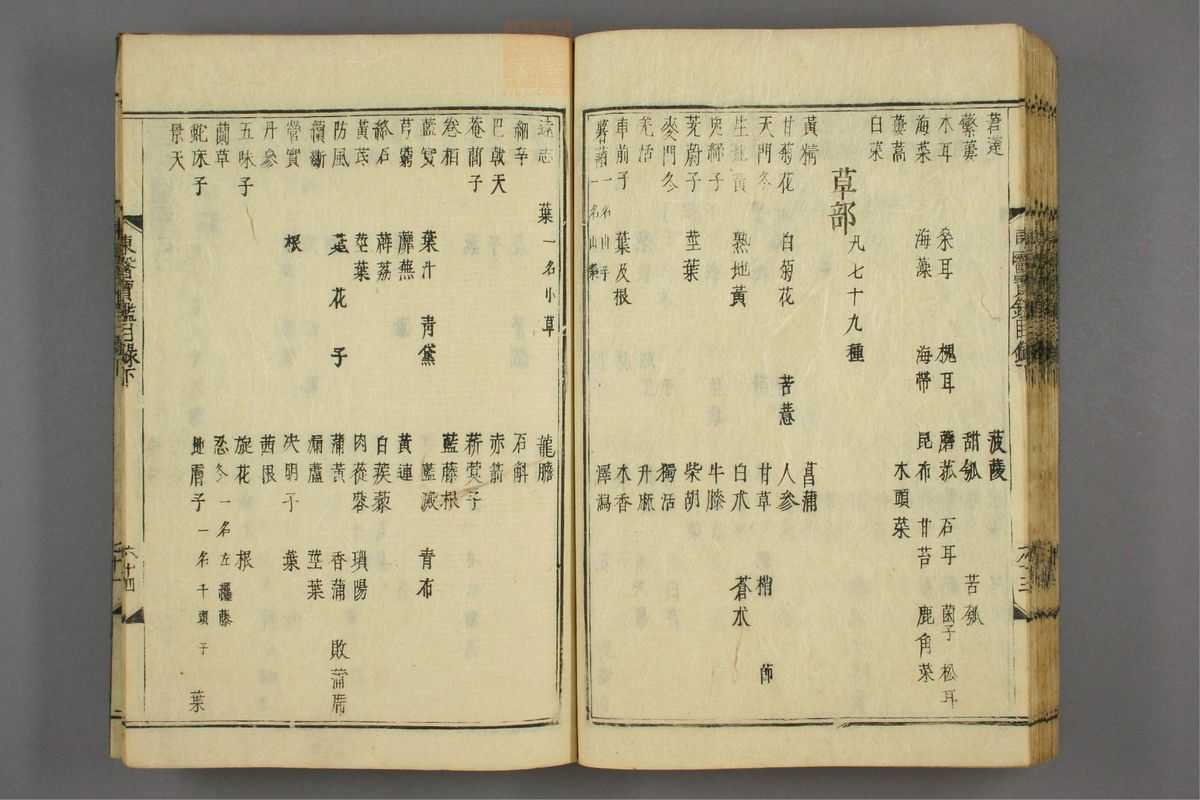 莙薘 菠薐
蘩蔞 甜瓠 苦瓠
木耳 桑耳 槐耳 蘑菰 石耳 菌子 松耳
海菜 海藻 海帶 昆布 甘苔 鹿角菜
蔞蒿 木頭菜
白菜
草部 凡七十九種
黃精 菖蒲
甘菊花 白菊花 苦薏 人參
天門冬 甘草 梢 節
生地黃 熟地黃 白朮 蒼朮
兔絲子 牛膝
茺蔚子 莖葉 柴胡
麥門冬 獨活
羌活 升麻
車前子 葉及根 木香
薯蕷 一名山芋 一名山藥 澤瀉
遠志 葉一名小草 龍膽
細辛 石斛
巴戟天 赤箭
菴䕡子 菥蓂子
卷柏 藍藤根
藍實 葉汁 靑黛 藍澱 青布
芎藭 蘼蕪 黃連
絡石 薜荔 白蒺藜
黃芪 莖葉 肉蓯蓉 瑣陽
防風 葉 花 子 蒲黃 香蒲 敗蒲席
續斷 漏蘆 莖葉
營實 根 决明子 葉
丹參 茜根
五味子 旋花 根
蘭草 忍冬 一名左纏藤
蛇床子 地膚子 一名千頭子 葉
景天
東醫寶鑑目錄下
六十四
六十三